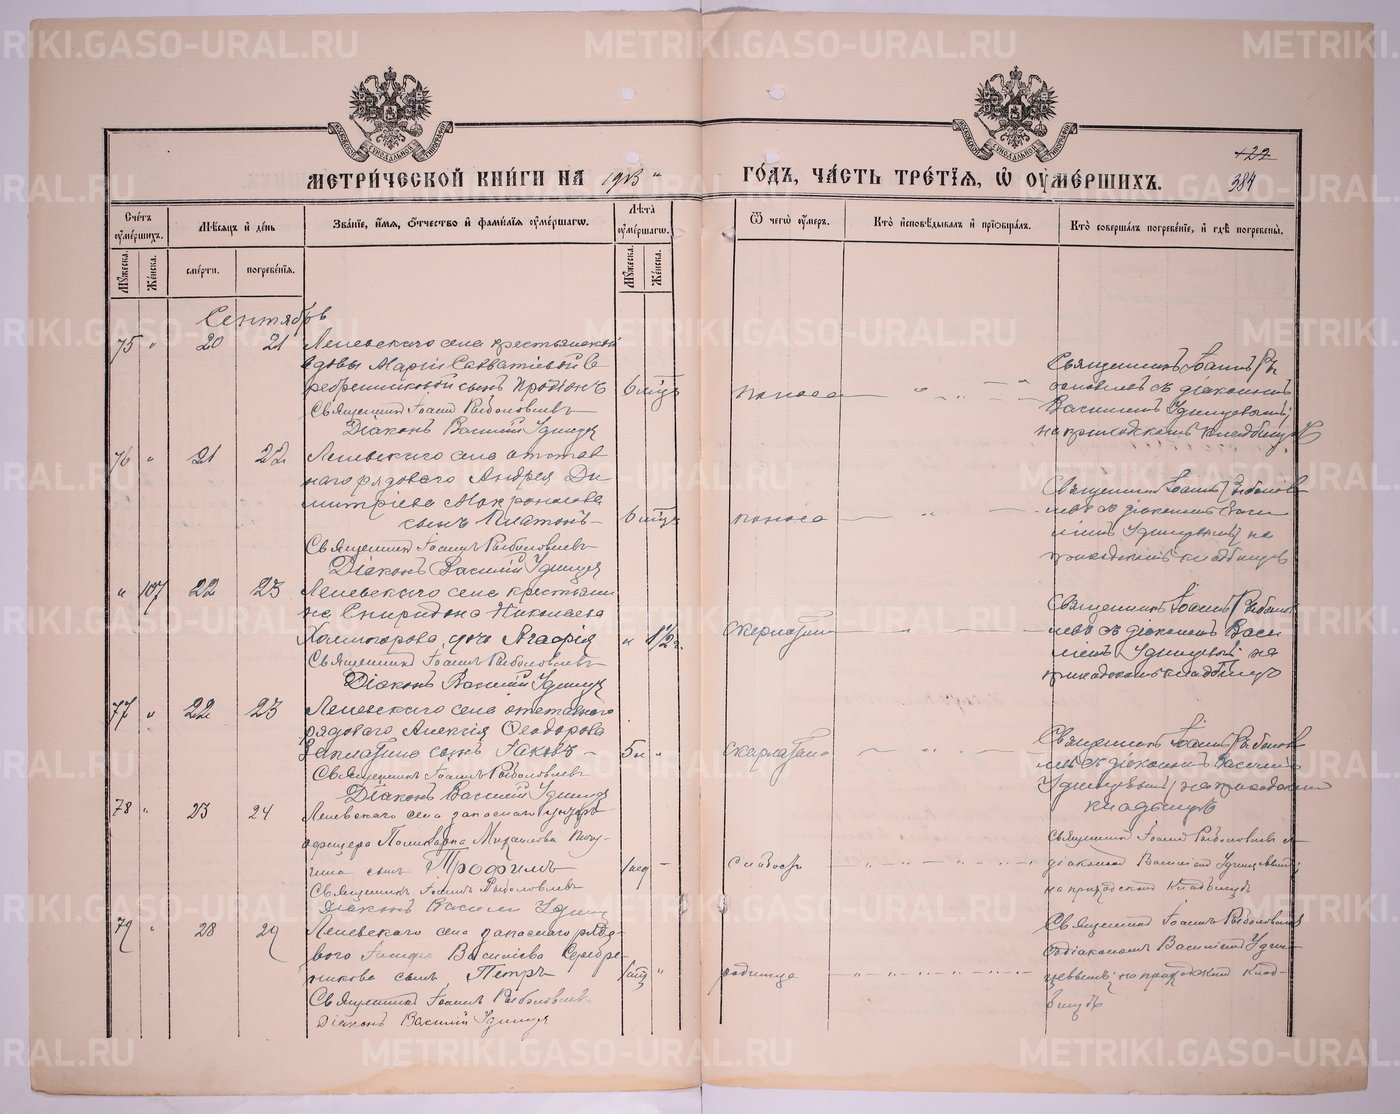 METRIKI.GASO-URAL.RU
МЕТРИ́ЧЕСКОЙ КНИ́ГИ НА 1913 ГО́ДЪ, ЧА́СТЬ ТРЕ́ТІѦ, Ѡ ОУМЕ́РШИХЪ.
129
384
Сче́тъ оуме́ршихъ.
Мѣ́сѧцъ и де́нь
Зва́ніе, и́мѧ, о́тчество и фами́ліѧ оуме́ршагѡ.
Лѣ́та оуме́ршагѡ.
Ѿ чегѡ̀ оу́меръ.
Кто̀ исповѣ́дывалъ и прїобща́лъ.
Кто̀ соверша́лъ погребе́ніе, и гдѣ̀ погребены̀.
Му́жеска.
Же́нска.
сме́рти.
погребе́нія.
Му́жеска.
Же́нска.
Сентябрь
75 " 20 21 Лепевскаго села крестьянской
вдовы Маріи Савватіевой Се
ребренниковой сынъ Протіонъ 6 мцъ поноса
Священникъ Іоаннъ Рыболовлевъ
Діаконъ Василій Удинцев
Священникъ Іоаннъ Ры
боловлевъ съ діакономъ
Василіемъ Удинцовымъ
на приходскомъ кладбищѣ
76 " 21 22 Лепевскаго села отстав
наго рядового Андрея Ди
митріева Макронасова
сынъ Платонъ 6 мцъ поноса
Священникъ Іоаннъ Рыболовлевъ
Діаконъ Василій Удинцев
Священникъ Іоаннъ Рыболов
левъ съ діакономъ Васи
ліемъ Удинцевымъ на
приходскомъ кладбищѣ
" 107 22 23 Лепевскаго села крестьяни
на Спиридона Николаева
Холмогорова дочь Агафія " 1 1/2 г. скарлатин
Священникъ Іоаннъ Рыболовлевъ
Діаконъ Василій Удинцев
Священникъ Іоаннъ Рыболов
левъ съ діакономъ Васи
ліемъ Удинцевымъ на
приходскомъ кладбищѣ
77 " 22 23 Лепевскаго села отставного
рядового Алексія Ѳеодорова
Заплатина сынъ Іаковъ 5 л " скарлатин
Священникъ Іоаннъ Рыболовлевъ
Діаконъ Василій Удинцев
Священникъ Іоаннъ Рыболов
левъ съ діакономъ Василіемъ
Удинцевымъ на приходскомъ
кладбищѣ
78 " 23 24 Лепевского села запаснаго унтеръ
офицера Поликарпа Михаилова
сынъ Трофимъ 1 нед слабость
Священникъ Іоаннъ Рыболовлевъ
Діаконъ Василій Удинцев
Священникъ Іоаннъ Рыболовлевъ съ
діакономъ Василіемъ Удинцевымъ
на приходскомъ кладбищѣ
79 " 28 29 Лепевского села запаснаго рядо
вого Іосифа Василіева Серебре
никова сынъ Петръ 1 мцъ " родимца
Священникъ Іоаннъ Рыболовлевъ
Діаконъ Василій Удинцев
Священникъ Іоаннъ Рыболовлевъ
съ діакономъ Василіемъ Удин
цевымъ на приходскомъ клад
бищѣ